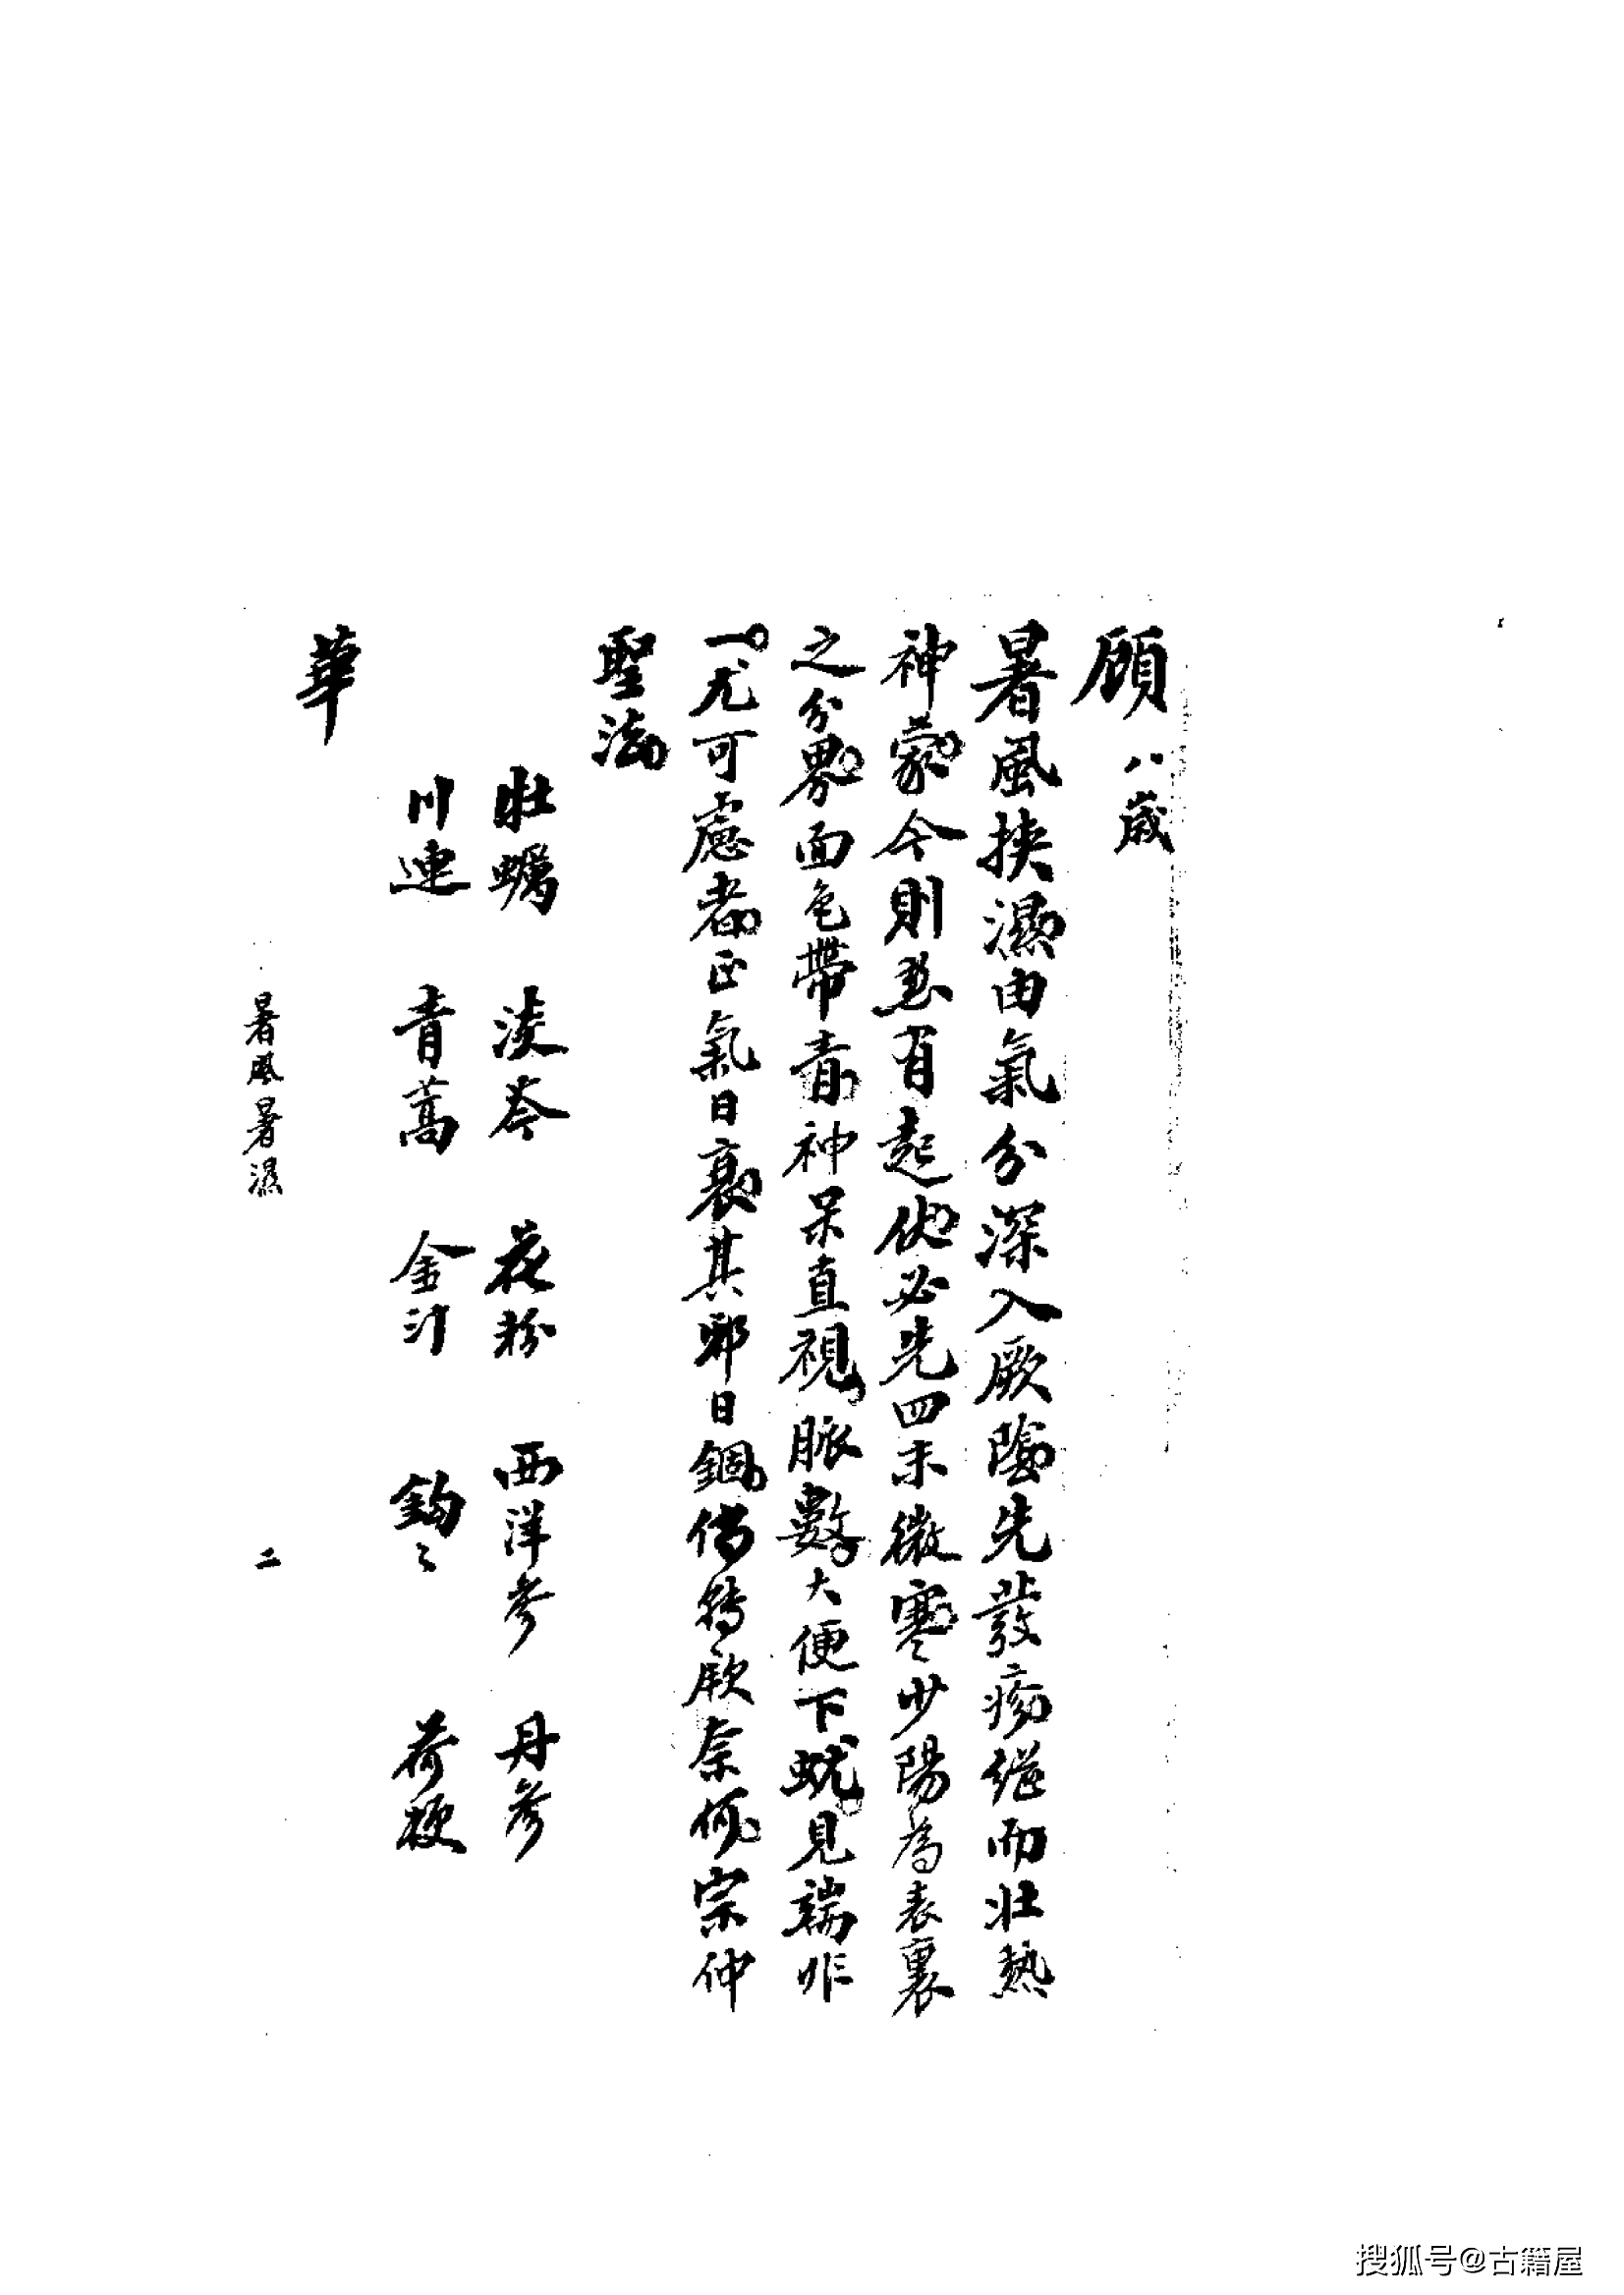 顧 八歲
暑風挾濕由氣分深入厥陰先發瘍繼而壯熱
神蒙今則熱有起伏必先四末微寒少陽為表裏
之分界面色帶青神呆直視脈數大便下蚘見端非
一尤可慮者正氣日衰其邪日錮倘轉厥奈何宗仲
聖法
牡蠣 淡芩 花粉 西洋參 丹參
川連 青蒿 金汁 鈎〻 荷梗
華
暑風暑濕
二
搜狐号@古籍屋